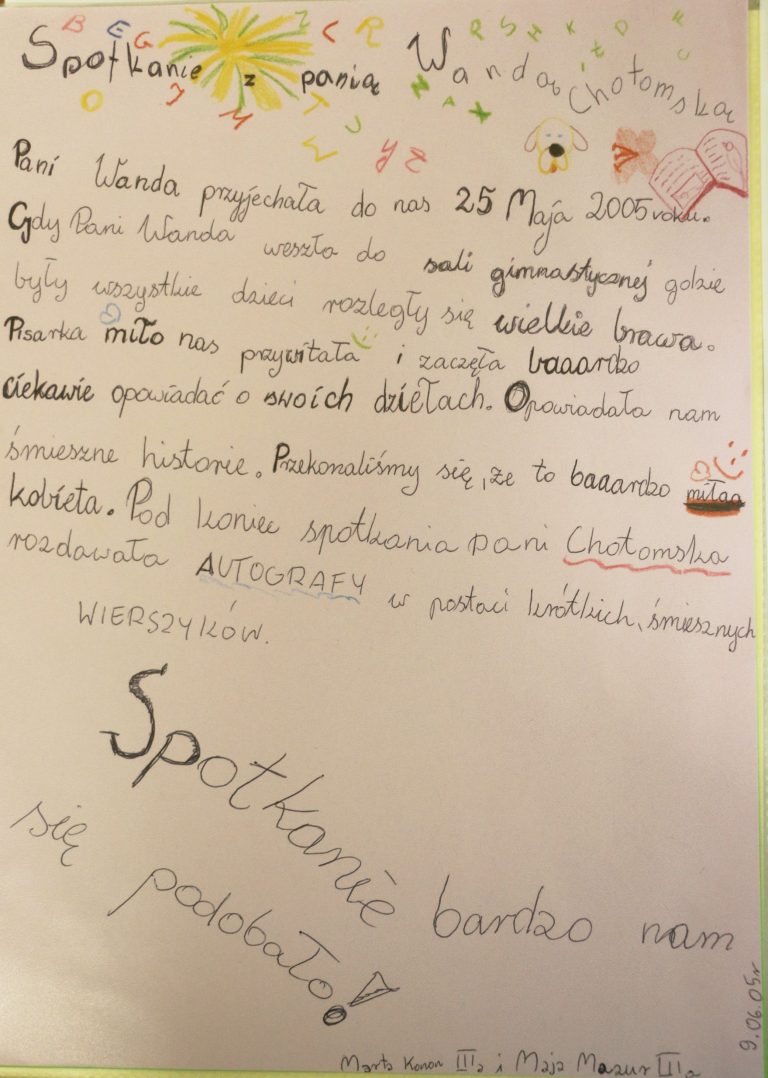 Spotkanie z panią Wandą Chotomską
Pani Wanda przyjechała do nas 25 Maja 2005 roku.
Gdy Pani Wanda weszła do sali gimnastycznej gdzie
były wszystkie dzieci rozległy się wielkie brawa.
Pisarka miło nas przywitała i zaczęła baaardzo
ciekawie opowiadać o swoich dziełach. Opowiadała nam
śmieszne historie. Przekonaliśmy się, że to baaardzo miłaa
kobieta. Pod koniec spotkania pani Chotomska
rozdawała AUTOGRAFY w postaci krótkich, śmiesznych
WIERSZYKÓW.
Spotkanie bardzo nam
się podobało!
9.06.05r
Marta Konon IIIa i Maja Mazur IIIa